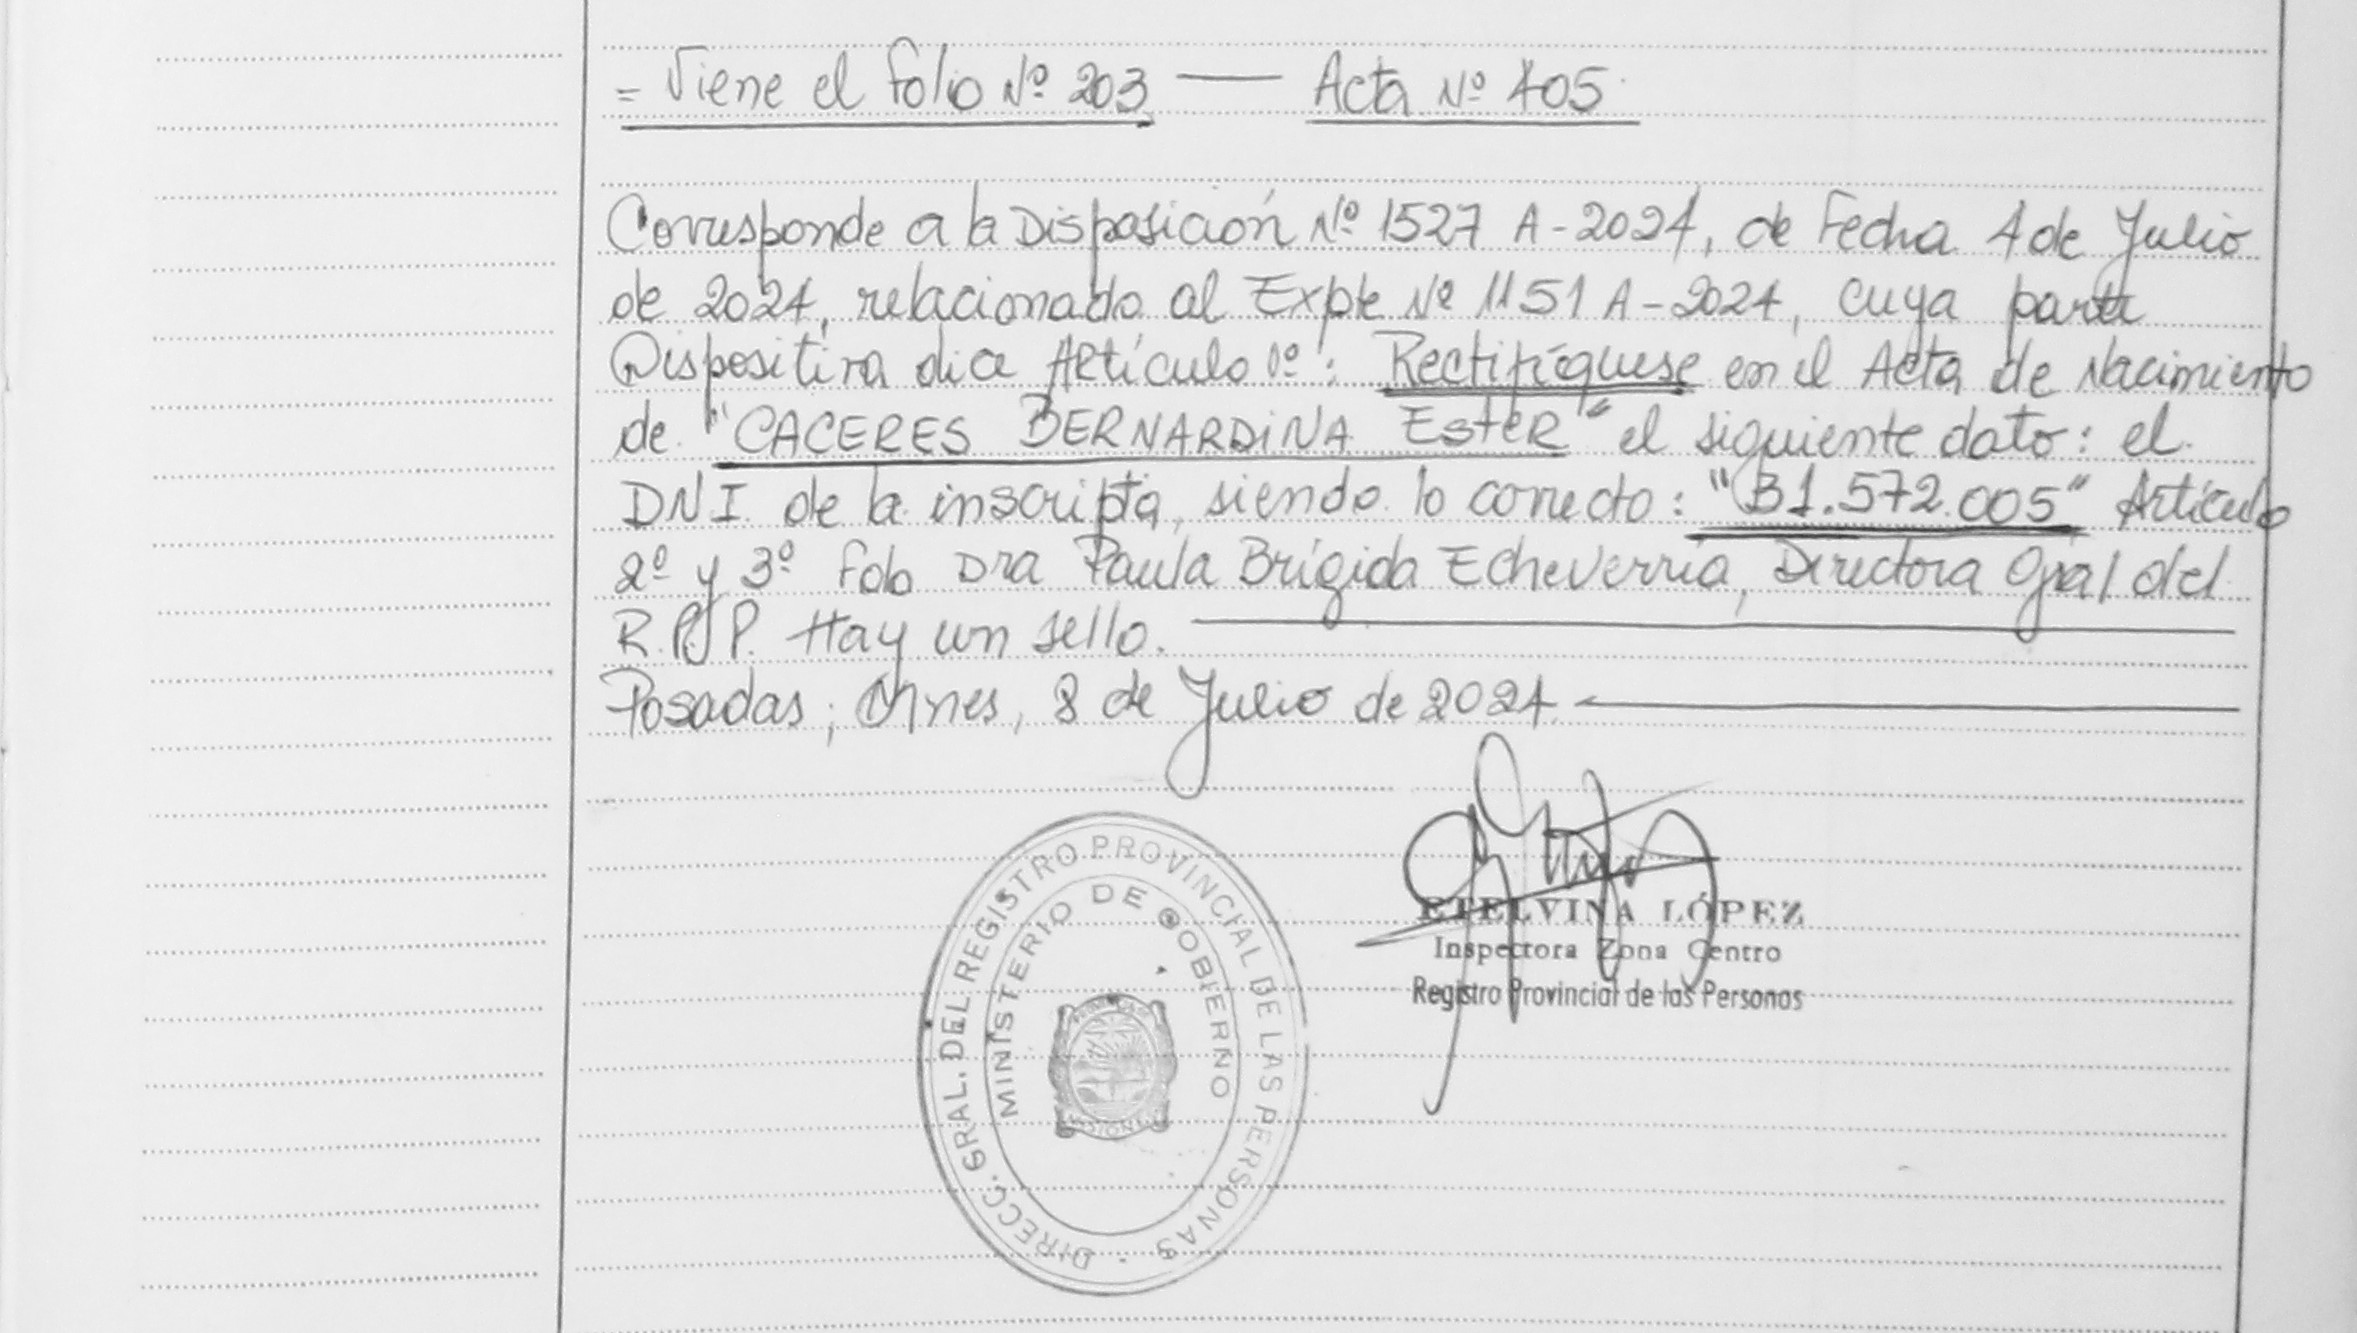 = Viene el folio Nº 203 — Acta Nº 405.
Corresponde a la Disposición Nº 1527 A-2024, de Fecha 4 de Julio
de 2024, relacionado al Expte Nº 1151 A-2024, cuya parte
Dispositiva dice Artículo 1º: Rectifíquese en el Acta de Nacimiento
de "CACERES BERNARDINA EstER" el siguiente dato: el
DNI de la inscripta, siendo lo correcto: "31.572.005" Artículo
2º y 3º Fdo Dra Paula Brígida Echeverría, Directora Gral del
R.P.P. Hay un sello.
Posadas, Mnes, 8 de Julio de 2024.
DIRECC. GRAL. DEL REGISTRO PROVINCIAL DE LAS PERSONAS
MINISTERIO DE GOBIERNO
MISIONES
ETELVINA LÓPEZ
Inspectora Zona Centro
Registro Provincial de las Personas